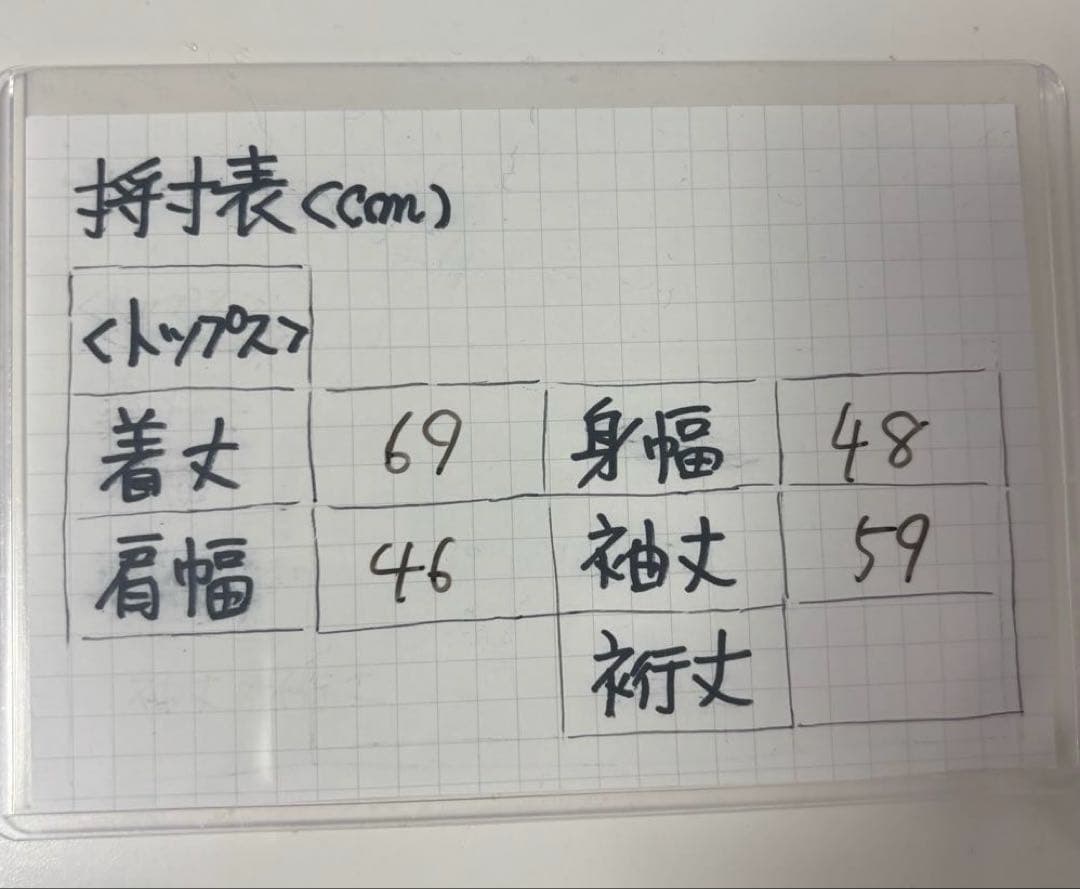 採寸表(cm)
<トップス>
着丈 69 身幅 48
肩幅 46 袖丈 59
裄丈